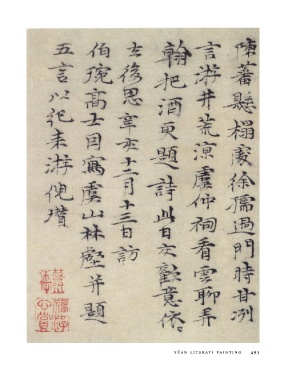 陳蕃懸榻處徐孺過門時甘冽
言游井荒涼虞仲祠看雲聊弄
翰把酒更題詩此日交歡意依〻
去後思辛亥十二月十三日訪
伯琬高士因寫虞山林壑并題
五言以紀来游倪瓚
YÜAN LITERATI PAINTING 493